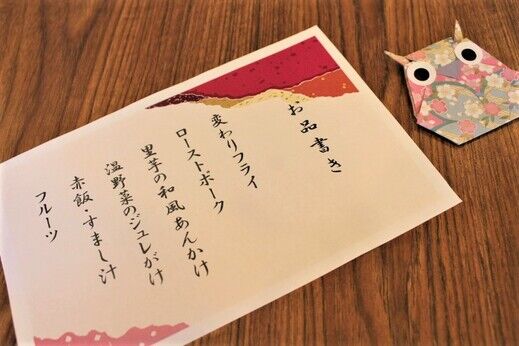 お品書き
変わりフライ
ローストポーク
里芋の和風あんかけ
温野菜のジュレがけ
赤飯・すまし汁
フルーツ